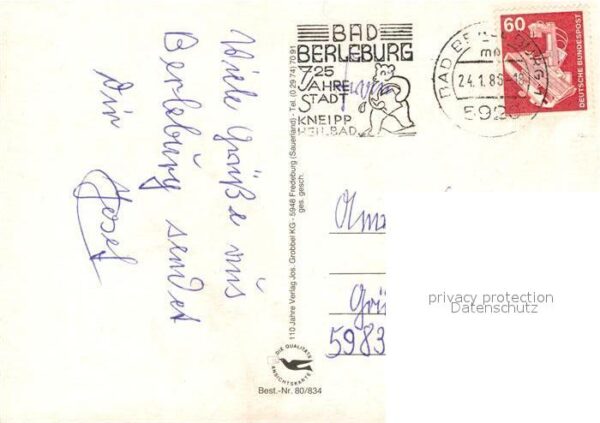 Viele Grüße aus
Berleburg sendet
Dir
Josef
BAD
BERLEBURG
725
JAHRE
STADT
KNEIPP
HEILBAD
BAD BERLEBURG 1
24.1.86
592
60
DEUTSCHE BUNDESPOST
110 Jahre Verlag Jos. Grobbel KG - 5948 Fredeburg (Sauerland) - Tel. (0 29 74) 70 91
ges. gesch.
5983
privacy protection
Datenschutz
DIE QUALITÄTS
ANSICHTSKARTE
Best.-Nr. 80/834